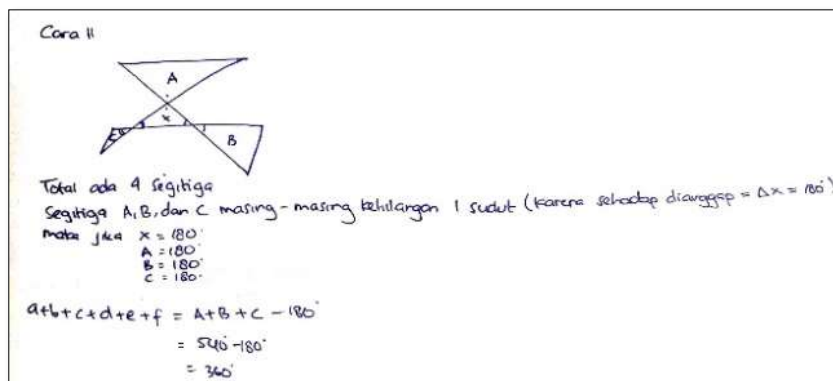 Cara II
A
x
C
B
Total ada 4 segitiga
Segitiga A, B, dan C masing-masing kehilangan 1 sudut (karena sehadap dianggap = Δx = 180°)
maka jika x = 180°
A = 180°
B = 180°
C = 180°
a+b+c+d+e+f = A+B+C - 180°
= 540° - 180°
= 360°